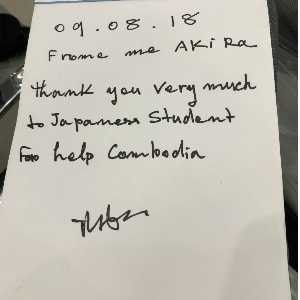 09.08.18
Frome me AKi Ra
Thank you very much
to Japaness Student
For help Cambodia